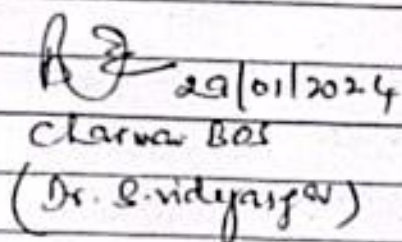 29/01/2024
Charman BOS
(Dr. S. vidyasgar)